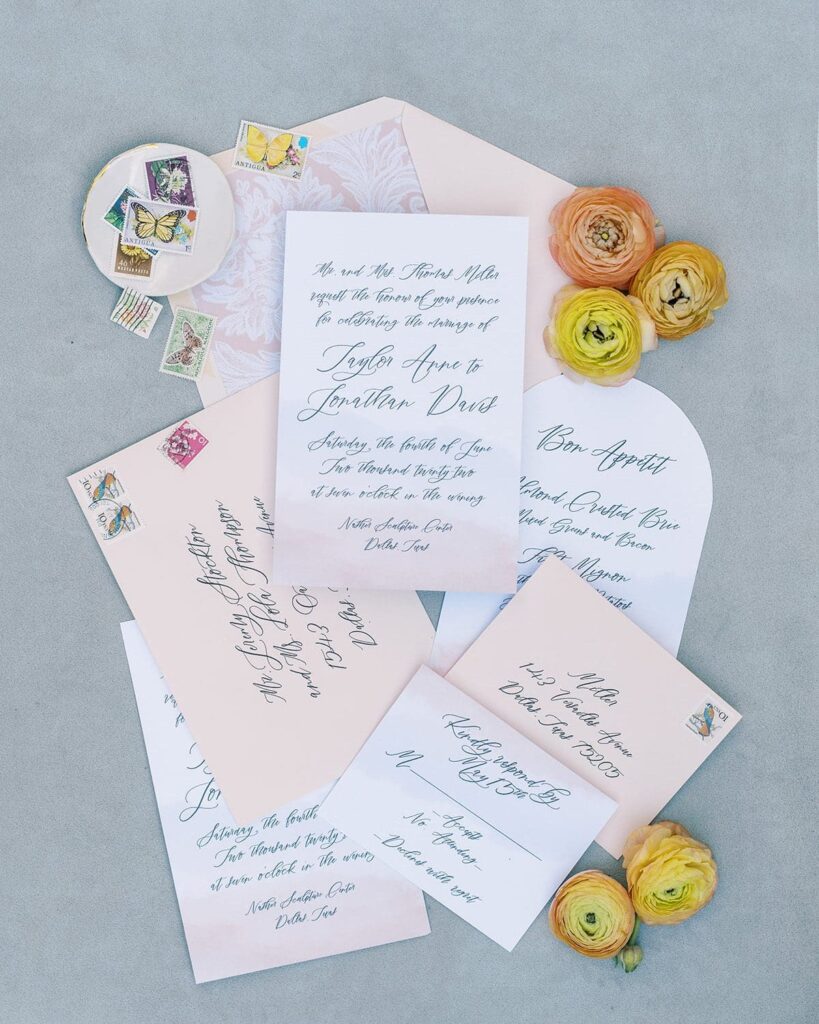 Mr. and Mrs. Thomas Meller
request the honour of your presence
for celebrating the marriage of
Taylor Anne to
Jonathan Davis
Saturday, the fourth of June
Two thousand twenty-two
at seven o'clock in the evening
Nasher Sculpture Center
Dallas, Texas
ANTIGUA
ANTIGUA
MAGYAR POSTA
Bon Appetit
Almond Crusted Brie
Mixed Greens and Bacon
Filet Mignon
Mr. Jeremy Stockton
and Ms. Lola Thompson
1543
Avenue
Dallas
Meller
143 Versailles Avenue
Dallas, Texas 75205
Kindly respond by
May 15th
M
Accepts
No. Attending
Declines with regret
Saturday, the fourth
Two thousand twenty
at seven o'clock in the evening
Nasher Sculpture Center
Dallas, Texas